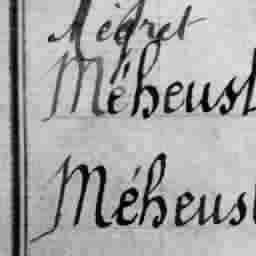 Mégret
Méheust
Méheust